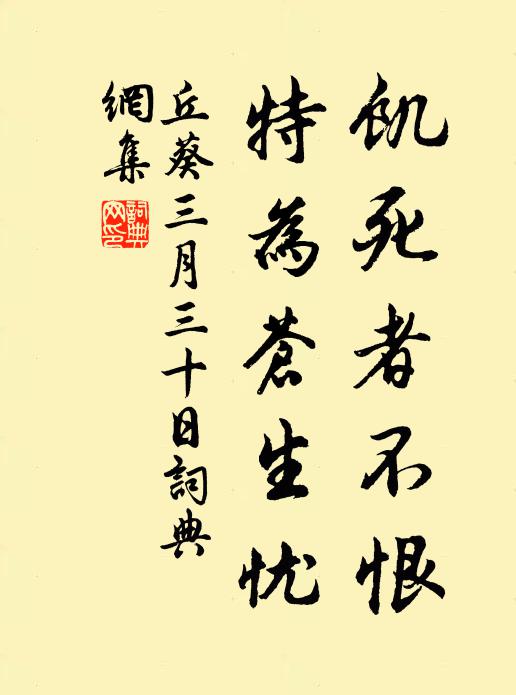 飢死者不恨
特為蒼生忧
丘葵三月三十日詞典
網集
詞典
网印